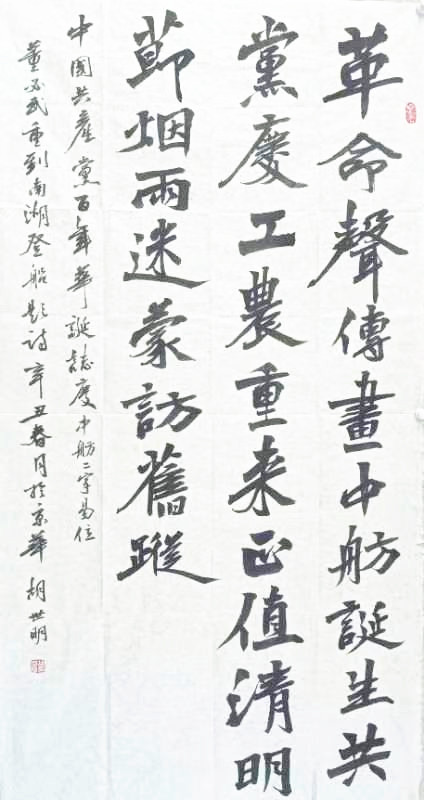 革命聲傳畫中舫誕生共
黨慶工農重来正值清明
節烟雨迷蒙訪舊蹤
中國共產黨百年華誕誌慶中舫二字易位
董必武重到南湖登船題诗辛丑春月於京華胡世明